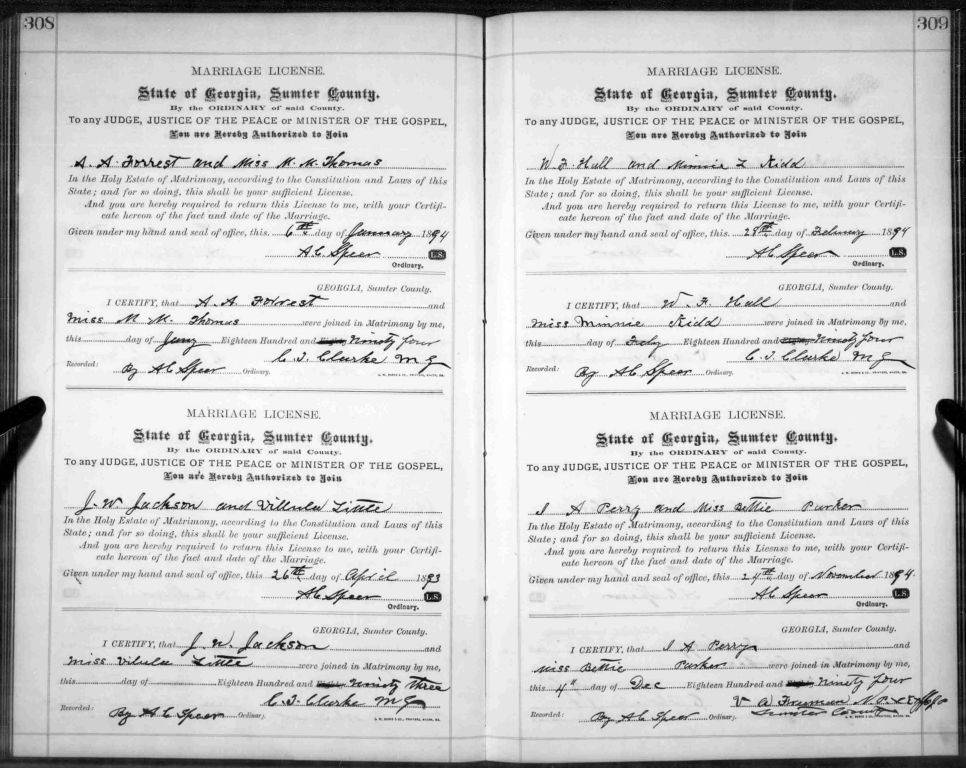 308
MARRIAGE LICENSE.
State of Georgia, Sumter County.
By the ORDINARY of said County.
To any JUDGE, JUSTICE OF THE PEACE or MINISTER OF THE GOSPEL,
You are Hereby Authorized to Join
A. A. Forrest and Miss M. M. Thomas
In the Holy Estate of Matrimony, according to the Constitution and Laws of this
State; and for so doing, this shall be your sufficient License.
And you are hereby required to return this License to me, with your Certifi-
cate hereon of the fact and date of the Marriage.
Given under my hand and seal of office, this 6th day of January 1894
A C Speer L.S.
Ordinary.
GEORGIA, Sumter County.
I CERTIFY, that A. A Forrest and
Miss M M. Thomas were joined in Matrimony by me,
this day of Jany Eighteen Hundred and Eighty Ninety four
C. T. Clarke M G
Recorded: By A C Speer Ordinary.
MARRIAGE LICENSE.
State of Georgia, Sumter County.
By the ORDINARY of said County.
To any JUDGE, JUSTICE OF THE PEACE or MINISTER OF THE GOSPEL,
You are Hereby Authorized to Join
J. W Jackson and Villula Little
In the Holy Estate of Matrimony, according to the Constitution and Laws of this
State; and for so doing, this shall be your sufficient License.
And you are hereby required to return this License to me, with your Certifi-
cate hereon of the fact and date of the Marriage.
Given under my hand and seal of office, this 26th day of April 1893
A C Speer L.S.
Ordinary.
GEORGIA, Sumter County.
I CERTIFY, that J. W. Jackson and
Miss Vilula Little were joined in Matrimony by me,
this day of Eighteen Hundred and Eighty Ninety three
C. T. Clarke M G
Recorded: By A C Speer Ordinary.
309
MARRIAGE LICENSE.
State of Georgia, Sumter County.
By the ORDINARY of said County.
To any JUDGE, JUSTICE OF THE PEACE or MINISTER OF THE GOSPEL,
You are Hereby Authorized to Join
W. F. Hall and Minnie L Kidd
In the Holy Estate of Matrimony, according to the Constitution and Laws of this
State; and for so doing, this shall be your sufficient License.
And you are hereby required to return this License to me, with your Certifi-
cate hereon of the fact and date of the Marriage.
Given under my hand and seal of office, this 28th day of February 1894
A C Speer L.S.
Ordinary.
GEORGIA, Sumter County.
I CERTIFY, that W. F. Hall and
Miss Minnie Kidd were joined in Matrimony by me,
this day of Feby Eighteen Hundred and Eighty Ninety four
C. T. Clarke M G
Recorded: By A C Speer Ordinary.
MARRIAGE LICENSE.
State of Georgia, Sumter County.
By the ORDINARY of said County.
To any JUDGE, JUSTICE OF THE PEACE or MINISTER OF THE GOSPEL,
You are Hereby Authorized to Join
I A Perry and Miss Bettie Parker
In the Holy Estate of Matrimony, according to the Constitution and Laws of this
State; and for so doing, this shall be your sufficient License.
And you are hereby required to return this License to me, with your Certifi-
cate hereon of the fact and date of the Marriage.
Given under my hand and seal of office, this 24th day of November 1894.
A C Speer L.S.
Ordinary.
GEORGIA, Sumter County.
I CERTIFY, that I A Perry and
Miss Bettie Parker were joined in Matrimony by me,
this 4" day of Dec Eighteen Hundred and Eighty Ninety four
V A Freeman N. P.
Sumter County
Recorded: By A C Speer Ordinary.